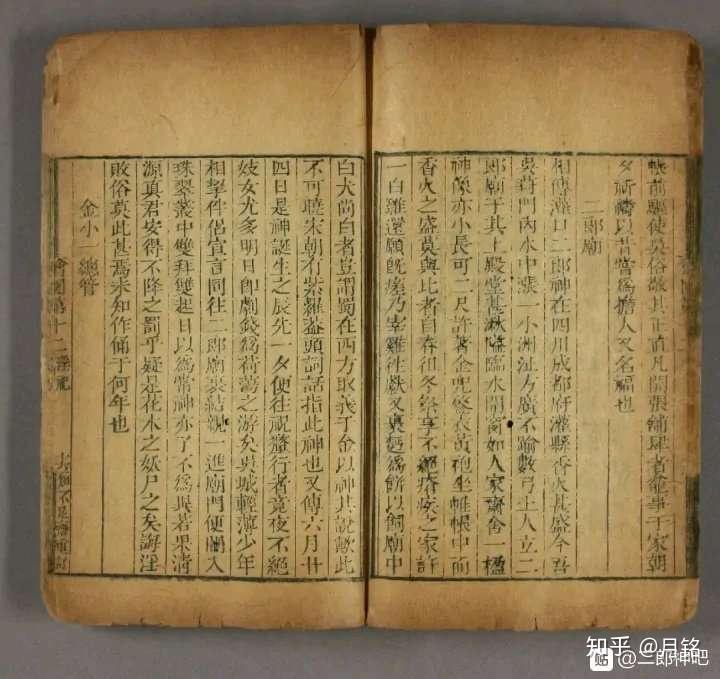 帳前驅使吳俗敬其正直凡開張鋪肆者龕事于家朝
夕祈禱以昔嘗爲擔人又名福也
二郎廟
相傳灌口二郎神在四川成都府灌縣香火甚盛今吾
吳葑門內水中漲一小洲沚方廣不踰數弓土人立二
郎廟于其上殿堂甚湫隘臨水開窗如人家齋舍一楹
神像亦小長可二尺許著金兜鍪衣黃袍坐帷帳中而
香火之盛莫與比者自春徂冬祭享不絕瘡疾之家許
一白雞還願旣痊乃宰雞往獻又裹麪爲餅以飼廟中
白犬尚白者豈謂蜀在西方取義于金以神其說歟此
不可曉宋朝有紫羅蓋頭詞話指此神也又傳六月廿
四日是神誕生之辰先一夕便往祝釐行者竟夜不絕
妓女尤多明日卽劇錢爲荷蕩之游矣吳城輕薄少年
相挈伴侶宣言同往二郎廟裏結親一進廟門便闌入
珠翠叢中雙拜雙起日以爲常神亦了不爲
若果清
源真君安得不降之罰乎疑是花木之妖尸之矣誨淫
敗俗莫此甚焉未知作俑于何年也
金小一總管
第十二 淫祀
知乎 @月铭
贴 @二郎神吧